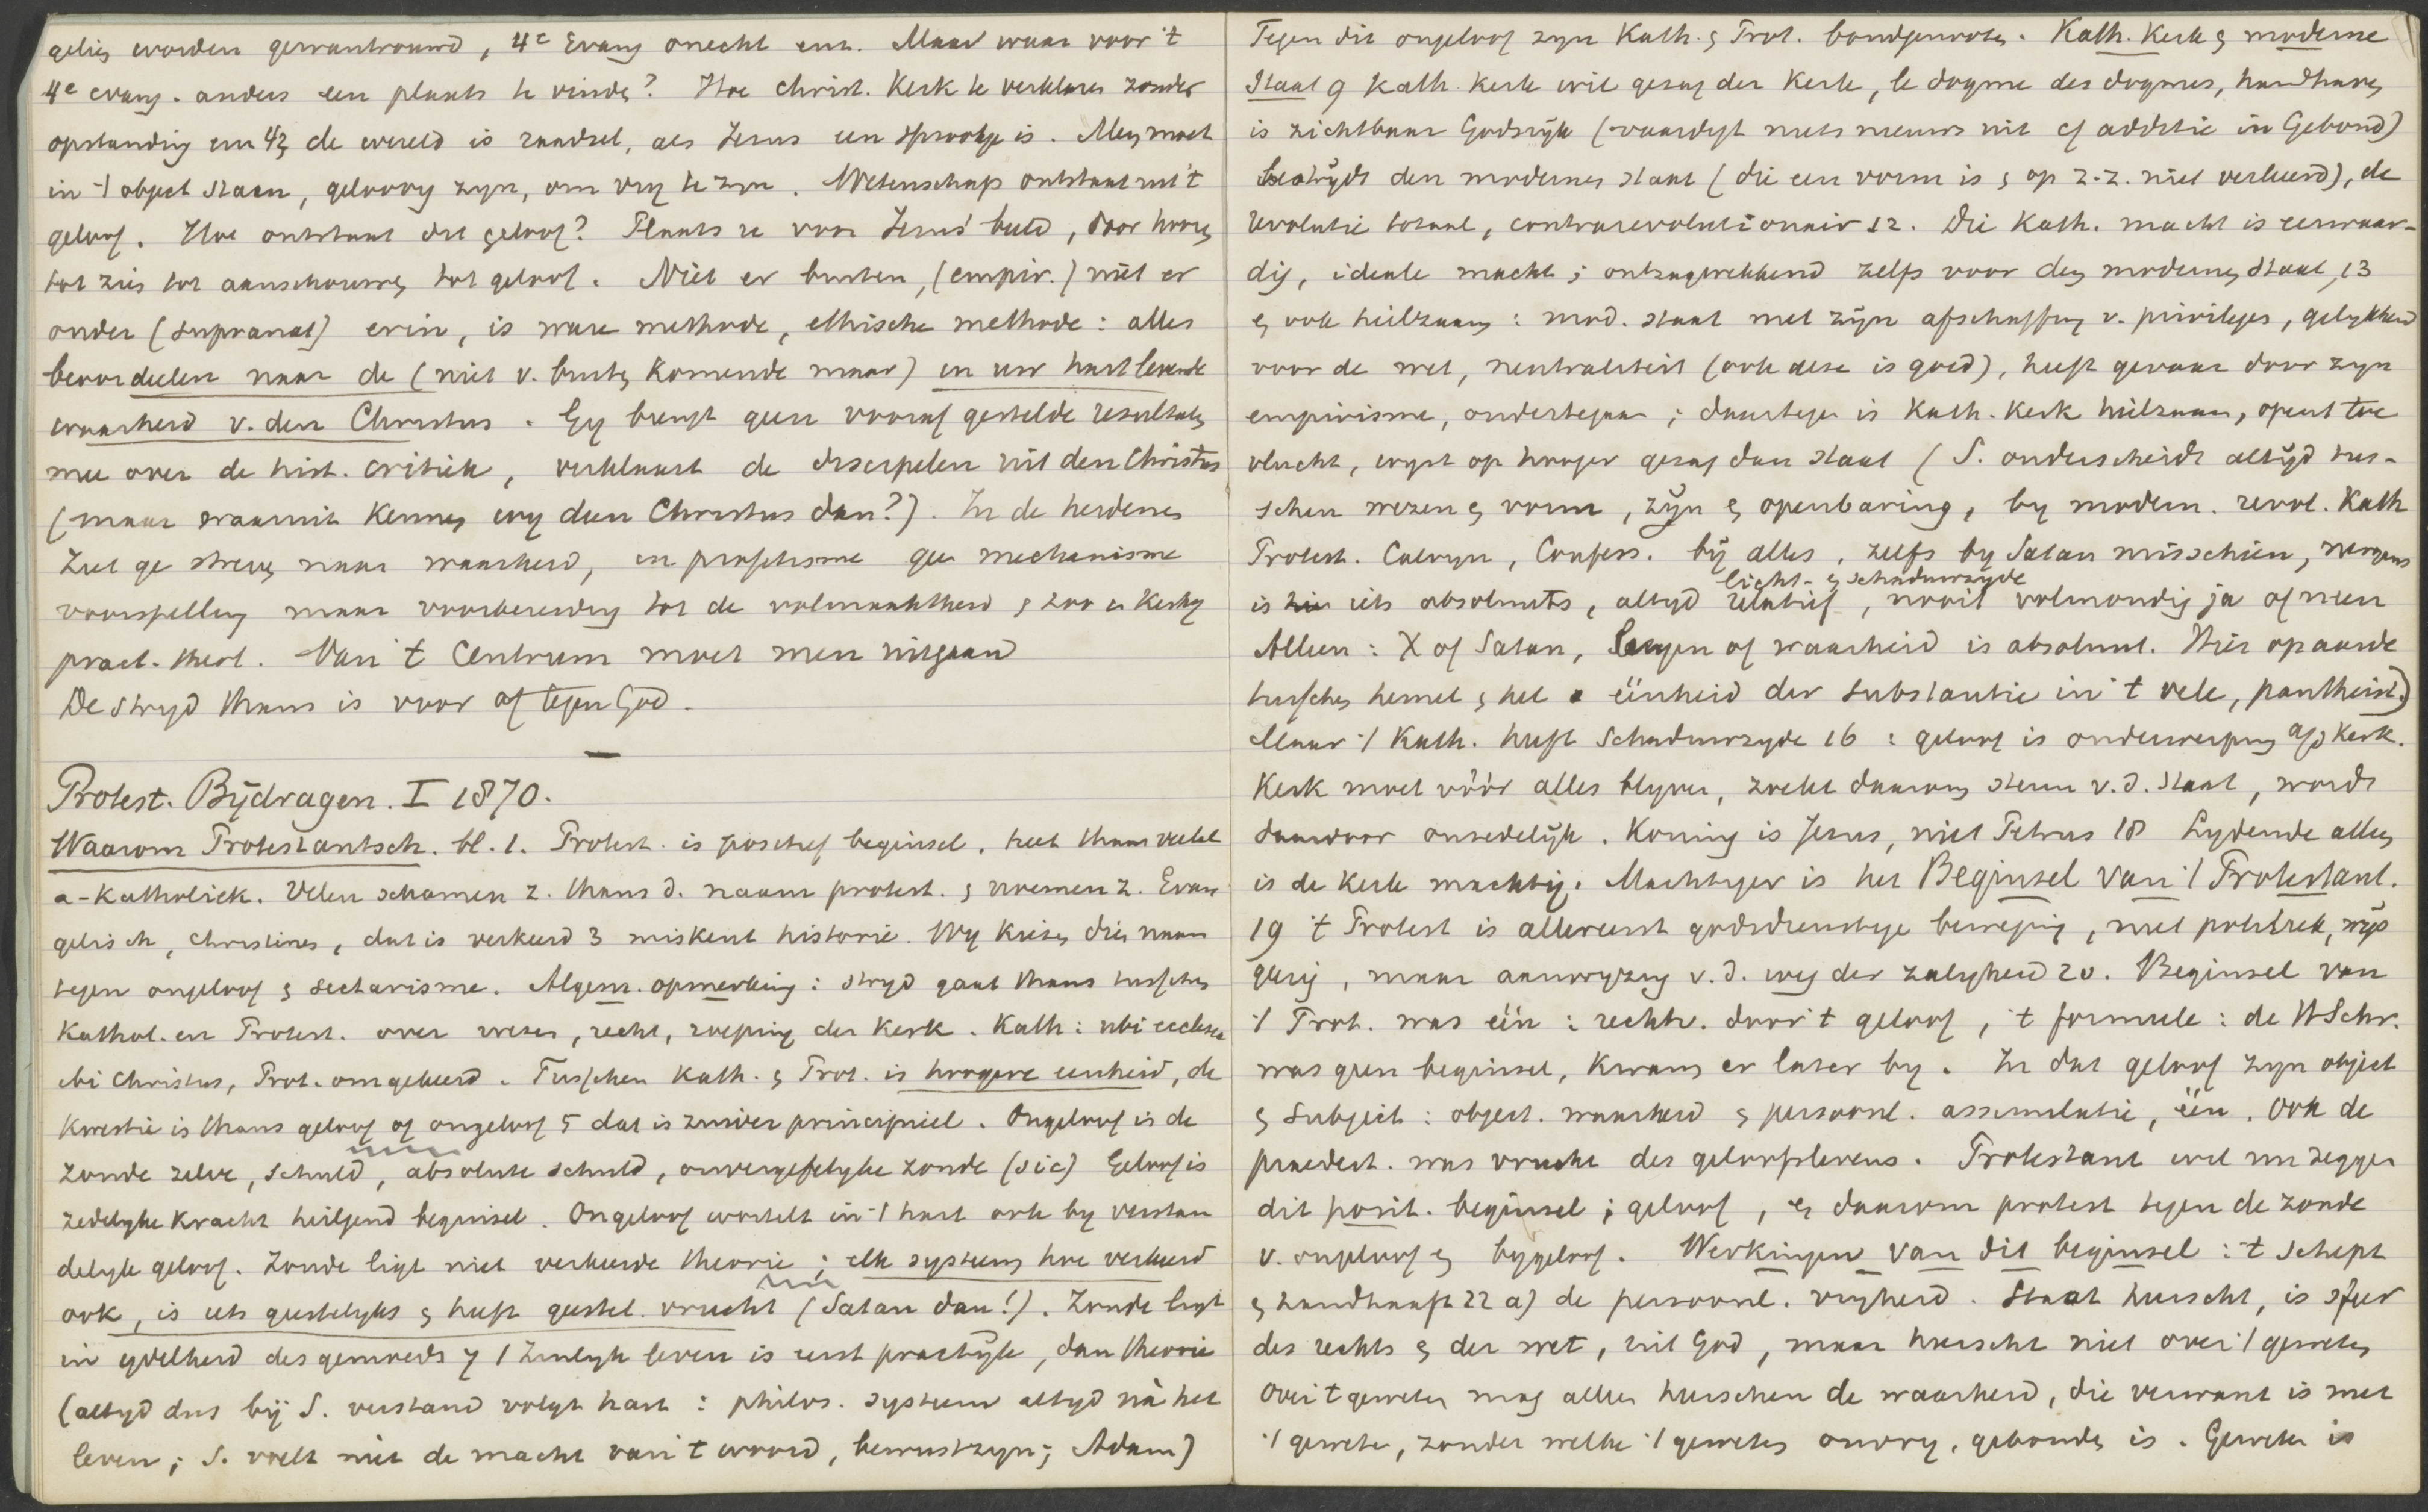 geliën worden gewantrouwd, 4e Evang onecht enz. Maar waar voor 't
4e evang. anders een plaats te vinden? Hoe christ. Kerk te verklaren zonder
opstanding enz de wereld is raadsel, als Jezus een sprookje is. Men moet
in 't object staan, geloovig zyn, om vry te zyn. Wetenschap ontstaat uit 't
geloof. Hoe ontstaat dit geloof? Plaats u voor Jezus' beeld, door hooren
tot zien tot aanschouwen tot geloof. Niet er buiten, (empir.) niet er
onder (supranat) erin, is ware methode, ethische methode: alles
beoordeelen naar de (niet v. buiten komende maar) in uw hart levende
waarheid v. den Christus. Gy brengt geen vooraf gestelde resultaten
mee over de hist. critiek, verklaart de discipelen uit den Christus
(maar waaruit kennen wy dien Christus dan?). In de heidenen
ziet ge streven naar waarheid, in profetisme geen mechanisme
voorspelling maar voorbereiding tot de volmaaktheid & zoo in Kerk
pract. theol. Van 't Centrum moet men uitgaan
De stryd thans is voor of tegen God.
Protest. Bÿdragen. I 1870.
Waarom Protestantsch. bl. 1. Protest. is positief beginsel, heet thans veelal
a-Katholiek. Velen schamen z. thans d. naam protest. & noemen z. Evan
gelisch, christines, dat is verkeerd 3 miskent historie. Wy kiezen dien naam
tegen ongeloof & sectarisme. Algem. opmerking: stryd gaat thans tusschen
Kathol. en Protest. over wezen, recht, roeping der Kerk. Kath: ubi ecclesia
ibi Christus, Prot. omgekeerd. Tusschen Kath. & Prot. is hoogere eenheid, de
kwestie is thans geloof of ongeloof 5 dat is zuiver principieel. Ongeloof is de
zonde zelve, schuld, absolute schuld, onvergefelyke zonde (sic) Geloof is
zedelyke kracht heiligend beginsel. Ongeloof wortelt in 't hart ook by verstan
delyk geloof. Zonde ligt niet verkeerde theorie; elk systeem hoe verkeerd
ook, is iets geestelyks & heeft geestel. vrucht (Satan dan!). Zonde ligt
in ydelheid des gemoeds 7 't Zinlyk leven is eerst practÿk, dan theorie
(altyd dus bÿ S. verstand volgt hart: philos. systeem altyd ná het
leven; S. voelt niet de macht van 't woord, bewustzyn; Adam)
Tegen dit ongeloof zyn Kath. & Prot. bondgenooten. Kath. Kerk & moderne
Staat 9 Kath. Kerk wil gezag der Kerk, le dogme des dogmes, handhaven
is zichtbaar Godsrÿk (vaardigt niets nieuws uit cf additie in Gebond)
bestrÿdt den modernen staat (die een vorm is & op z.z. niet verkeerd), de
revolutie totaal, contrarevolutionair 12. Die Kath. macht is eerwaar-
dig, ideale macht; ontzagwekkend zelfs voor den modernen Staat, 13
& ook heilzaam: mod. staat met zÿn afschaffing v. privileges, gelykheid
voor de wet, neutraliteit (ook deze is goed), heeft gevaar door zyn
empirisme, ondertegaan; daartegen is Kath. Kerk heilzaam, opent toe
vlucht, wyst op hooger gezag dan staat (S. onderscheidt altÿd tus-
schen wezen & vorm, zÿn & openbaring, by modern. revol. Kath
Protest. Calvyn, Confess. bÿ alles, zelfs by Satan misschien, nergens
licht- & schaduwzyde
is iets absoluuts, altyd relatief, nooit volmondig ja of neen
Alleen: X of Satan, leugen of waarheid is absoluut. Hier op aarde
tusschen hemel & hel eenheid der substantie in 't vele, pantheist.)
Maar 't Kath. heeft schaduwzyde 16: geloof is onderwerping a/d Kerk.
Kerk moet vóór alles blyven, zoekt daarom steun v.d. Staat, wordt
daardoor onzedelÿk. Koning is Jezus, niet Petrus 18 Lydende alleen
is de Kerk machtig. Machtiger is het Beginsel van 't Protestant.
19 't Protest is allereerst godsdienstige beweging, niet politiek, wÿs
geerig, maar aanwyzing v.d. weg der zaligheid 20. Beginsel van
't Prot. was één: rechtv. door 't geloof, 't formeele: de H Schr.
was geen beginsel, kwam er later by. In dat geloof zyn object
& subject: object. waarheid & persoonl. assimilatie, één. Ook de
praedest. was vrucht des geloofslevens. Protestant wil nu zeggen
dit posit. beginsel; geloof, & daarom protest tegen de zonde
v. ongeloof & bygeloof. Werkingen van dit beginsel: 't schept
& handhaaft 22 a) de persoonl. vryheid. Staat heerscht, is sfeer
des rechts & der wet, uit God, maar heerscht niet over 't geweten
over 't geweten mag alleen heerschen de waarheid, die verwant is met
't geweten, zonder welke 't geweten onvry, gebonden is. Geweten is